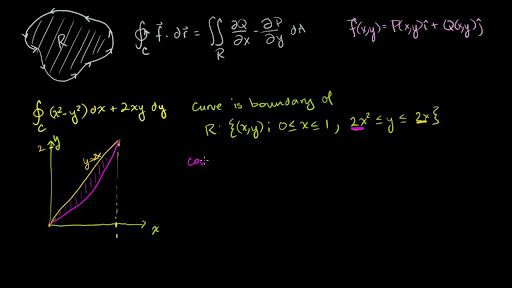 R ∮_C f⃗ · dr⃗ = ∬_R ∂Q/∂x − ∂P/∂y dA f⃗(x,y) = P(x,y)î + Q(x,y)ĵ
∮_C (x²−y²) dx + 2xy dy curve is boundary of
R: {(x,y); 0 ≤ x ≤ 1, 2x² ≤ y ≤ 2x}
2 y
y=2x
x